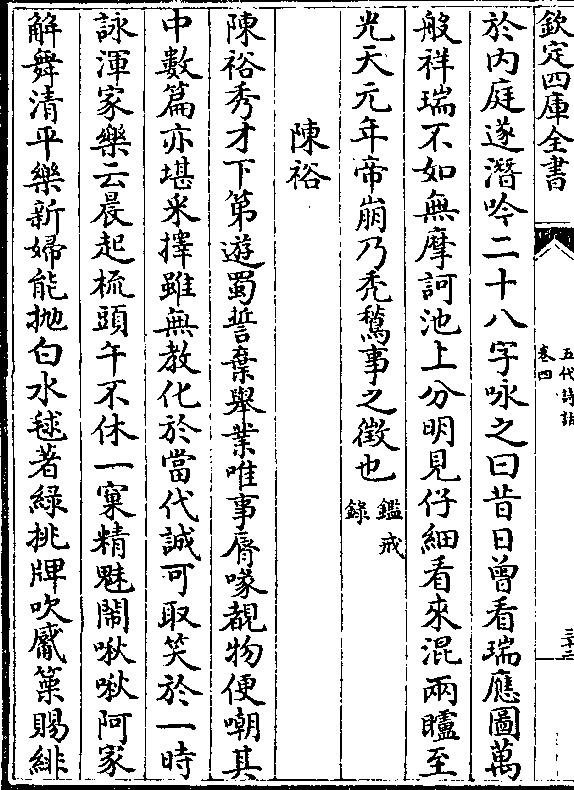 欽定四庫全書
五代詩話
卷四
於内庭遂潛吟二十八字咏之曰昔日曾看瑞應圖萬
般祥瑞不如無摩訶池上分明見仔細看來混兩鸕至
光天元年帝崩乃秃鶖事之徴也鑑戒錄
陳裕
陳裕秀才下第遊蜀誓棄舉業唯事唇喙覩物便嘲其
中數篇亦堪采擇雖無教化於當代誠可取笑於一時
詠渾家樂云晨起梳頭午不休一窠精魅鬧啾啾阿家
解舞清平樂新婦能抛白水毬著綠挑牌吹觱篥賜緋